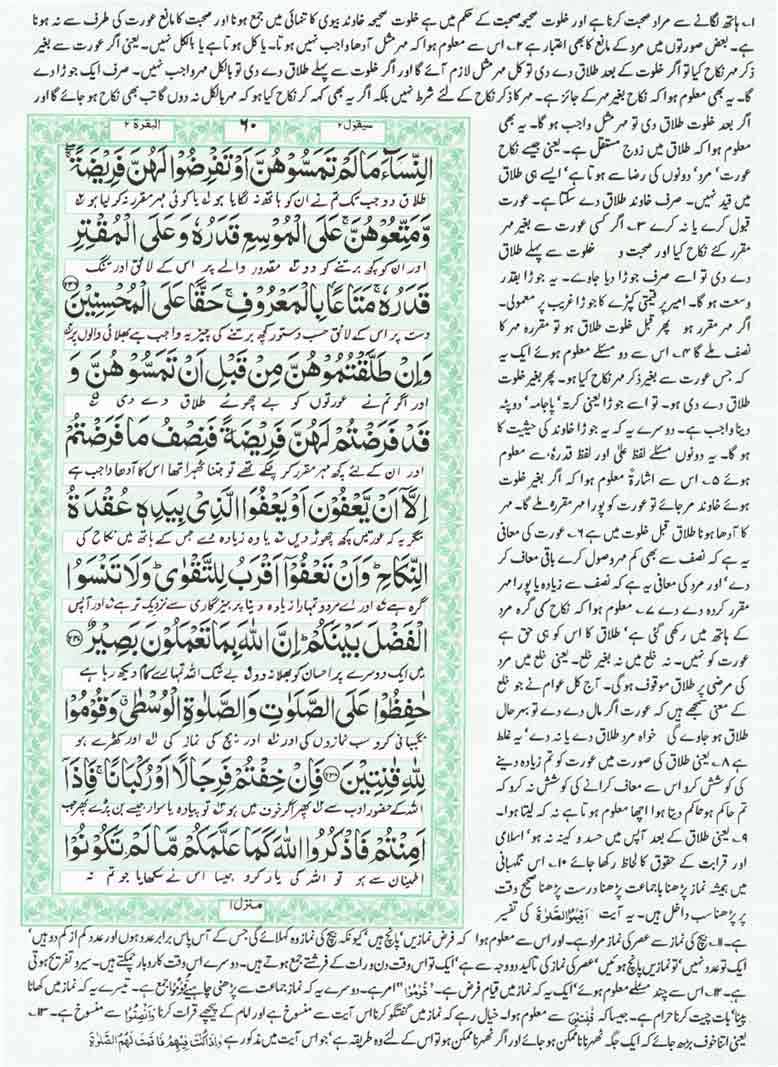 ۱۔ ہاتھ لگانے سے مراد صحبت کرنا ہے اور خلوت صحیحہ صحبت کے حکم میں ہے خلوت صحیحہ خاوند بیوی کا تنہائی میں جمع ہونا اور صحبت کا مانع عورت کی طرف سے نہ ہونا
ہے۔ بعض صورتوں میں مرد کے مانع کا بھی اعتبار ہے ۲۔ اس سے معلوم ہوا کہ مہر مثل آدھا واجب نہیں ہوتا۔ یا کل ہوتا ہے یا بالکل نہیں۔ یعنی اگر عورت سے بغیر
ذکر مہر نکاح کیا تو اگر خلوت کے بعد طلاق دے دی تو کل مہر مثل لازم آئے گا اور اگر خلوت سے پہلے طلاق دے دی تو بالکل مہر واجب نہیں۔ صرف ایک جوڑا دے
گا۔ یہ بھی معلوم ہوا کہ نکاح بغیر مہر کے جائز ہے۔ مہر کا ذکر نکاح کے لئے شرط نہیں بلکہ اگر یہ بھی کہہ کر نکاح کیا ہو کہ مہر بالکل نہ دوں گا تب بھی نکاح ہو جائے گا اور
اگر بعد خلوت طلاق دی تو مہر مثل واجب ہو گا۔ یہ بھی
معلوم ہوا کہ طلاق میں زوج مستقل ہے۔ یعنی جیسے نکاح
عورت' مرد' دونوں کی رضا سے ہوتا ہے' ایسے ہی طلاق
میں قید نہیں۔ صرف خاوند طلاق دے سکتا ہے۔ عورت
قبول کرے یا نہ کرے ۳۔ اگر کسی عورت سے بغیر مہر
مقرر کئے نکاح کیا اور صحبت و خلوت سے پہلے طلاق
دے دی تو اسے صرف جوڑا دیا جاوے۔ یہ جوڑا بقدر
وسعت ہو گا۔ امیر پر قیمتی کپڑے کا جوڑا غریب پر معمولی۔
اگر مہر مقرر ہو پھر قبل خلوت طلاق ہو تو مقررہ مہر کا
نصف ملے گا ۴۔ اس سے دو مسئلے معلوم ہوئے ایک یہ
کہ جس عورت سے بغیر ذکر مہر نکاح کیا ہو۔ پھر بغیر خلوت
طلاق دے دی ہو۔ تو اسے جوڑا یعنی کرتہ' پاجامہ' دوپٹہ
دینا واجب ہے۔ دوسرے یہ کہ یہ جوڑا خاوند کی حیثیت کا
ہو گا۔ یہ دونوں مسئلے لفظ علیٰ اور لفظ قدرہٗ سے معلوم
ہوئے ۵۔ اس سے اشارۃً معلوم ہوا کہ اگر بغیر خلوت
ہوئے خاوند مر جائے تو عورت کو پورا مہر مقررہ ملے گا۔ مہر
کا آدھا ہونا طلاق قبل خلوت میں ہے ۶۔ عورت کی معافی
یہ ہے کہ نصف سے بھی کم مہر وصول کرے باقی معاف کر
دے' اور مرد کی معافی یہ ہے کہ نصف سے زیادہ یا پورا مہر
مقرر کردہ دے دے ۷۔ معلوم ہوا کہ نکاح کی گرہ مرد
کے ہاتھ میں رکھی گئی ہے' طلاق کا اس کو ہی حق ہے
عورت کو نہیں۔ نہ خلع میں نہ بغیر خلع۔ یعنی خلع میں مرد
کی مرضی پر طلاق موقوف ہوگی۔ آج کل عوام نے جو خلع
کے معنی سمجھے ہیں کہ عورت اگر مال دے دے تو بہر حال
طلاق ہو جاوے گی خواہ مرد طلاق دے یا نہ دے' یہ غلط
ہے ۸۔ یعنی طلاق کی صورت میں عورت کو تم زیادہ دینے
کی کوشش کرو اس سے معاف کرانے کی کوشش نہ کرو کہ
تم حاکم ہو حاکم دیتا ہوا اچھا معلوم ہوتا ہے نہ کہ لیتا ہوا۔
۹۔ یعنی طلاق کے بعد آپس میں حسد و کینہ نہ ہو' اسلامی
اور قرابت کے حقوق کا لحاظ رکھا جائے ۱۰۔ اس نگہبانی
میں ہمیشہ نماز پڑھنا باجماعت پڑھنا درست پڑھنا صحیح وقت
پر پڑھنا سب داخل ہیں۔ یہ آیت اَقِيْمُوا الصَّلٰوةَ کی تفسیر
سیقول ۲ ۶۰ البقرة ۲
النِّسَآءَ مَا لَمْ تَمَسُّوْهُنَّ اَوْ تَفْرِضُوْا لَهُنَّ فَرِيْضَةً ۖۚ
طلاق دو جب تک تم نے ان کو ہاتھ نہ لگایا ہو یا کوئی مہر مقرر نہ کر لیا ہو
وَّمَتِّعُوْهُنَّ ۚ عَلَى الْمُوْسِعِ قَدَرُهٗ وَعَلَى الْمُقْتِرِ
اور ان کو کچھ برتنے کو دو مقدور والے پر اس کے لائق اور تنگ
قَدَرُهٗ ۚ مَتَاعًۢا بِالْمَعْرُوْفِ ۚ حَقًّا عَلَى الْمُحْسِنِيْنَ ﴿۲۳۶﴾
دست پر اس کے لائق حسب دستور کچھ برتنے کی چیز یہ واجب ہے بھلائی والوں پر
وَاِنْ طَلَّقْتُمُوْهُنَّ مِنْ قَبْلِ اَنْ تَمَسُّوْهُنَّ وَ
اور اگر تم نے عورتوں کو بے چھوئے طلاق دے دی
قَدْ فَرَضْتُمْ لَهُنَّ فَرِيْضَةً فَنِصْفُ مَا فَرَضْتُمْ
اور ان کے لئے کچھ مہر مقرر کر چکے تھے تو جتنا ٹھہرا تھا اس کا آدھا واجب ہے
اِلَّآ اَنْ يَّعْفُوْنَ اَوْ يَعْفُوَا الَّذِيْ بِيَدِهٖ عُقْدَةُ
مگر یہ کہ عورتیں کچھ چھوڑ دیں یا وہ زیادہ دے جس کے ہاتھ میں نکاح کی
النِّكَاحِ ؕ وَاَنْ تَعْفُوْٓا اَقْرَبُ لِلتَّقْوٰى ؕ وَلَا تَنْسَوُا
گرہ ہے اور اے مردو تمہارا زیادہ دینا پرہیزگاری سے نزدیک تر ہے اور آپس
الْفَضْلَ بَيْنَكُمْ ؕ اِنَّ اللّٰهَ بِمَا تَعْمَلُوْنَ بَصِيْرٌ ﴿۲۳۷﴾
میں ایک دوسرے پر احسان کو بھلا نہ دو بے شک اللہ تمہارے کام دیکھ رہا ہے
حٰفِظُوْا عَلَى الصَّلَوٰتِ وَالصَّلٰوةِ الْوُسْطٰى ۗ وَقُوْمُوْا
نگہبانی کرو سب نمازوں کی اور بیچ کی نماز کی اور کھڑے ہو
لِلّٰهِ قٰنِتِيْنَ ﴿۲۳۸﴾ فَاِنْ خِفْتُمْ فَرِجَالًا اَوْ رُكْبَانًا ۚ فَاِذَآ
اللہ کے حضور ادب سے پھر اگر خوف میں ہو تو پیادہ یا سوار جیسے بن پڑے پھر جب
اَمِنْتُمْ فَاذْكُرُوا اللّٰهَ كَمَا عَلَّمَكُمْ مَّا لَمْ تَكُوْنُوْا
اطمینان سے ہو تو اللہ کی یاد کرو جیسا اس نے سکھایا جو تم نہ
منزل ۱
ہے۔ ۱۱۔ بیچ کی نماز سے عصر کی نماز مراد ہے۔ اور اس سے معلوم ہوا کہ فرض نمازیں' پانچ ہیں' کیونکہ بیچ کی نماز وہ کہلائے گی جس کے آس پاس برابر عدد ہوں اور عدد کم از کم دو ہیں'
ایک تو عدد نہیں' تو نمازیں پانچ ہوئیں' عصر کی نماز کی تاکید دو وجہ سے ہے' ایک تو اس وقت دن و رات کے فرشتے جمع ہوتے ہیں۔ دوسرے اس وقت کاروبار چمکتے ہیں۔ سیر و تفریح ہوتی
ہے۔ ۱۲۔ اس سے چند مسئلے معلوم ہوئے' ایک یہ کہ نماز میں قیام فرض ہے۔ قُوْمُوْا امر ہے۔ دوسرے یہ کہ نماز جماعت سے پڑھنی چاہیے قُوْمُوْا جمع ہے۔ تیسرے یہ کہ نماز میں کھانا
پینا' بات چیت کرنا حرام ہے۔ جیسا کہ قٰنِتِيْنَ سے معلوم ہوا۔ خیال رہے کہ نماز میں گفتگو کرنا اس آیت سے منسوخ ہے اور امام کے پیچھے قرات کرنا وَاَنْصِتُوْا سے منسوخ ہے۔ ۱۳۔
یعنی اتنا خوف بڑھ جائے کہ ایک جگہ ٹھہرنا ناممکن ہو جائے اور اگر ٹھہرنا ممکن ہو تو اس کے لئے وہ طریقہ ہے' جو اس آیت میں مذکور ہے وَاِذَا كُنْتَ فِيْهِمْ فَاَقَمْتَ لَهُمُ الصَّلٰوةَ